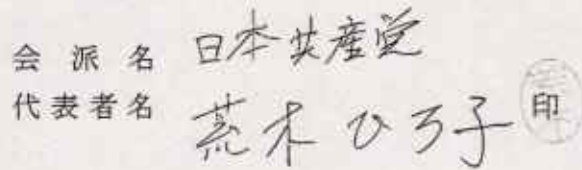 会派名 日本共産党
代表者名 荒木ひろ子 印